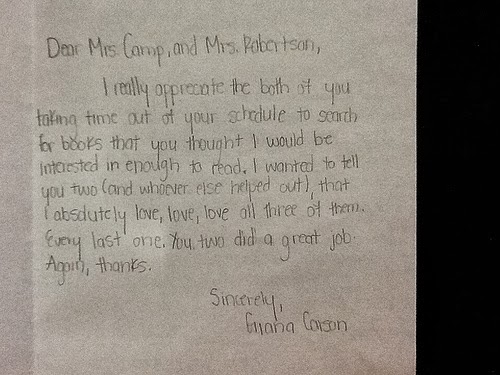 Dear Mrs. Camp, and Mrs. Robertson,
I really appreciate the both of you
taking time out of your schedule to search
for books that you thought I would be
interested in enough to read. I wanted to tell
you two (and whoever else helped out), that
I absolutely love, love, love all three of them.
Every last one. You two did a great job.
Again, thanks.
Sincerely,
Carson